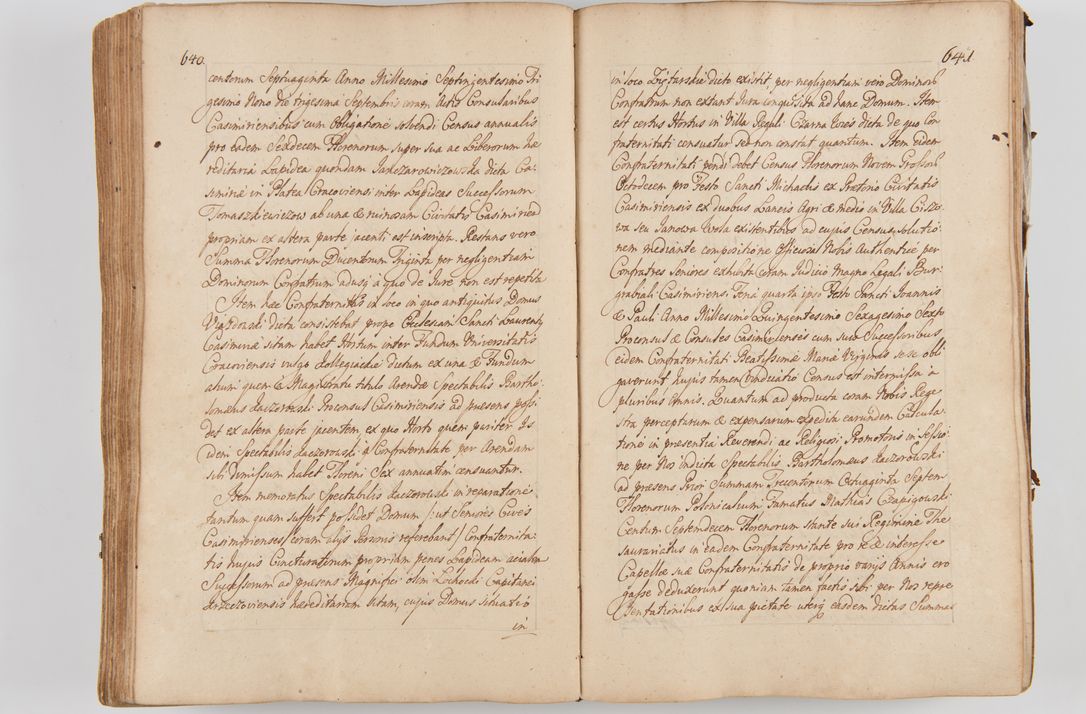 640
centorum Septuaginta Anno Millesimo Septingentesimo Tri
gesimo Nono die trigesima Septembris coram Actis Consularibus
Casimiriensibus cum obligatione solvendi Census annualis
pro eadem Sexdecem Florenorum super sua ac Liberorum hæ
reditaria Lapidea quondam Janczarowiczowska dicta Ca-
simiriæ in Platea Cracoviensi inter Lapideas Successorum
Tomaszkiewiczow ab una & ruinosam Civitatis Casimiriæ
propriam ex altera parte jacenti est inscripta. Restans vero
Summa Florenorum Ducentorum Triginta per negligentiam
Dominorum Confratrum adusq; a quo de Jure non est repetita
Item hæc Confraternitas ex loco in quo antiquitus Domus
dicta consistebat prope Ecclesiam Sancti Laurentii
Casimiriæ sitam habet Hortum inter Fundum Universitatis
Cracoviensis vulgo Kollegiackie dictum ex una & Fundum
alium quem a Magistratu titulo Arendæ Spectabilis Bartho-
lomæus Kaczorowski Proconsul Casimiriensis ad præsens possi
det ex altera parte jacentem, ex quo Horto quem pariter Is
dem Spectabilis Kaczorowski a Confraternitate per Arendam
sibi dimissum habet Floreni Sex annuatim censuantur.
Item memoratus Spectabilis Kaczorowski in reparatione
tantum quam suffert possidet Domum /: ut Seniores Cives
Casimirienses coram alijs Personis referebant / Confraternita-
tis hujus Cincturatorum propriam penes Lapideam
Successorum ad præsens Magnifici olim Lochocki Capitanei
hæreditariam sitam, cujus Domus situatio
in
641
in loco dicto existit, per negligentiam vero Dominorũ
Confratrum non extant Jura conquisita ad hanc Domum. Item
est certus Hortus in Villa Reguli Czarna Wieś dicta de quo Con
fraternitati censuatur sed non constat quantum. Item eidem
Confraternitati pendi debet Census Florenorum Novem Grossorũ
Octodecem pro Festo Sancti Michaelis ex Prætorio Civitatis
Casimiriensis ex duobus Laneis Agri & medio in Villa
seu Janowa Wola existentibus ad cujus Census solutio
nem mediante compositione Officiosa Nobis Authentice per
Confratres Seniores exhibita coram Judicio Magno Legali Bur
grabiali Casimiriensi Feria quarta ipso Festo Sancti Joannis
& Pauli Anno Millesimo Quingentesimo Sexagesimo Sexto
Proconsul & Consules Casimirienses cum suis Successoribus
eidem Confraternitati Beatissimæ Mariæ Virginis sese obli
gaverunt hujus tamen vendicatio Census est intermissa a
pluribus Annis. Quantum ad producta coram Nobis Rege-
stra perceptarum & expensarum expedita earundem Calcula-
tione in præsentia Reverendi ac Religiosi Promotoris in Sessio
ne per Nos indicta Spectabilis Bartholomæus Kaczorowski
ad præsens Prior Summam Trecentorum Octuaginta Septem
Florenorum Polonicalium Famatus Mathias Czapigowski
Centum Septemdecem Florenorum stante suo Regimine The
saurariatus in eadem Confraternitate pro re & interesse
Capellæ suæ Confraternitatis de proprio varijs Annis ero
gasse deduxerunt quoniam tamen factis sibi per Nos repre
sentationibus ex sua pietate uterq; easdem dictas Summas